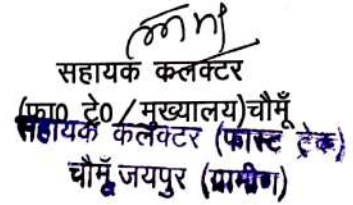 सहायक कलक्टर
(फा० ट्रे० / मुख्यालय) चौमूँ
सहायक कलक्टर (फास्ट ट्रेक)
चौमूँ, जयपुर (ग्रामीण)